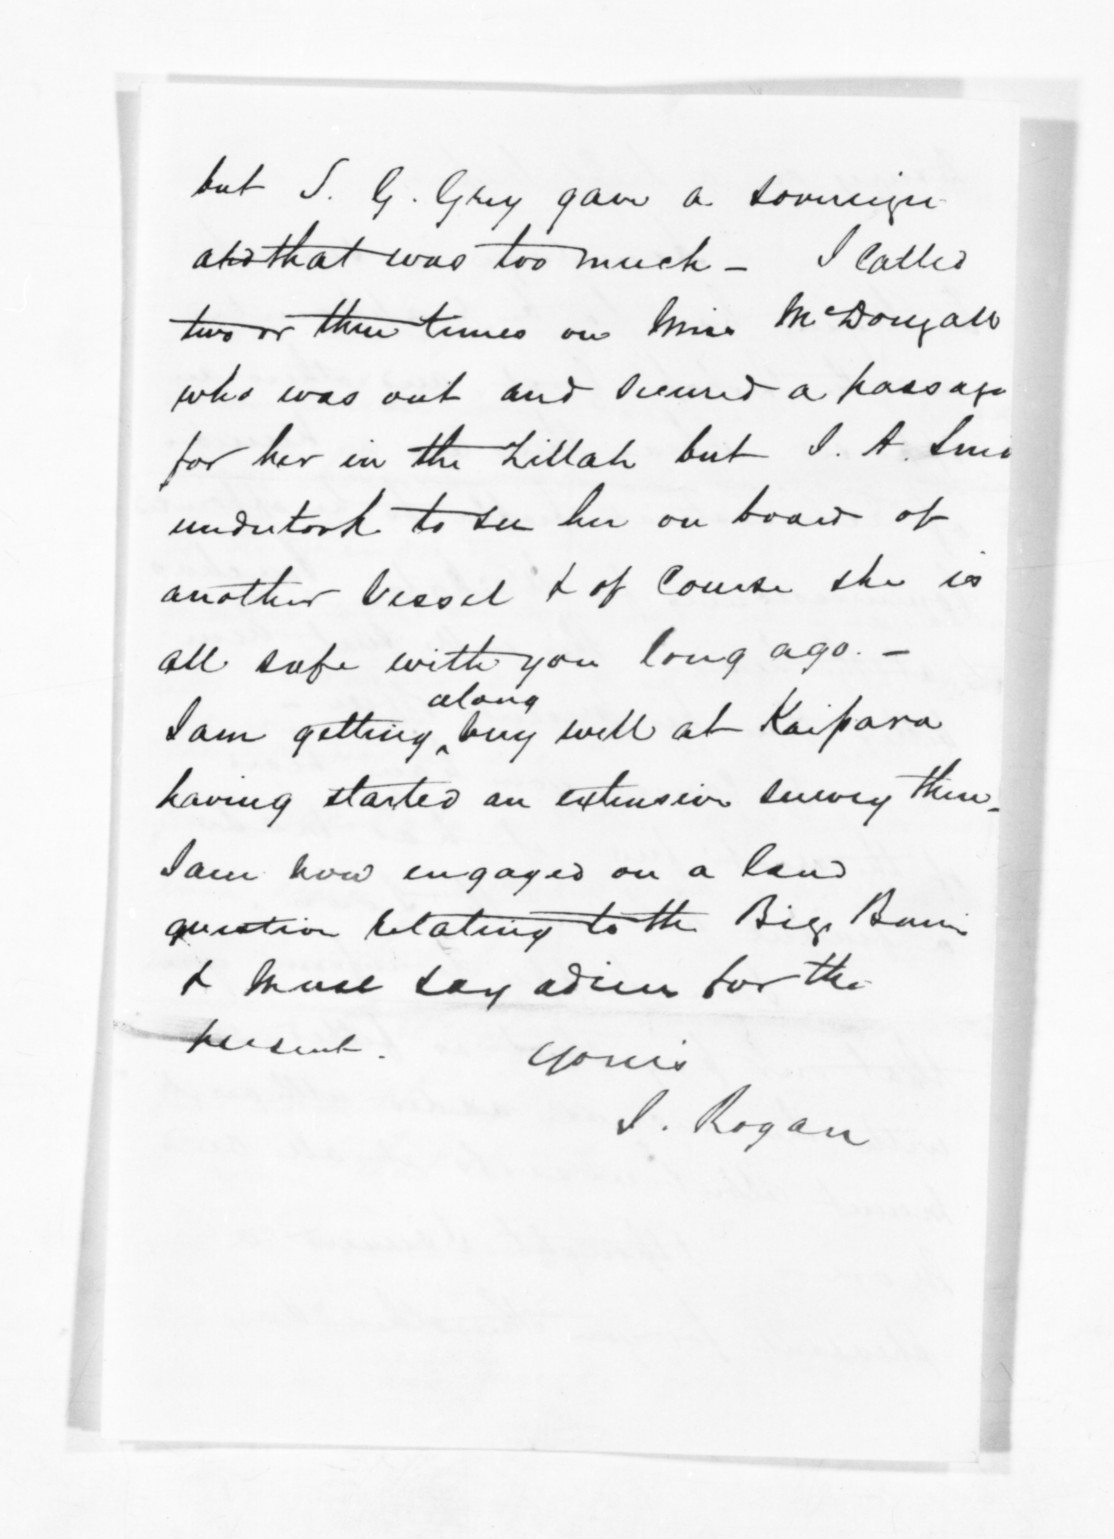 but S. G. Grey gave a sovereign
and that was too much - I called
two or three times on Miss McDougall
who was out and secured a passage
for her in the Zillah but J. A. Smi
undertook to see her on board of
another vessel & of course she is
all safe with you long ago. -
along
I am getting ^ very well at Kaipara
having started an extensive survey there -
I am now engaged on a land
question relating to the Big Bum
& must say adieu for the
present. Yours
J. Rogan